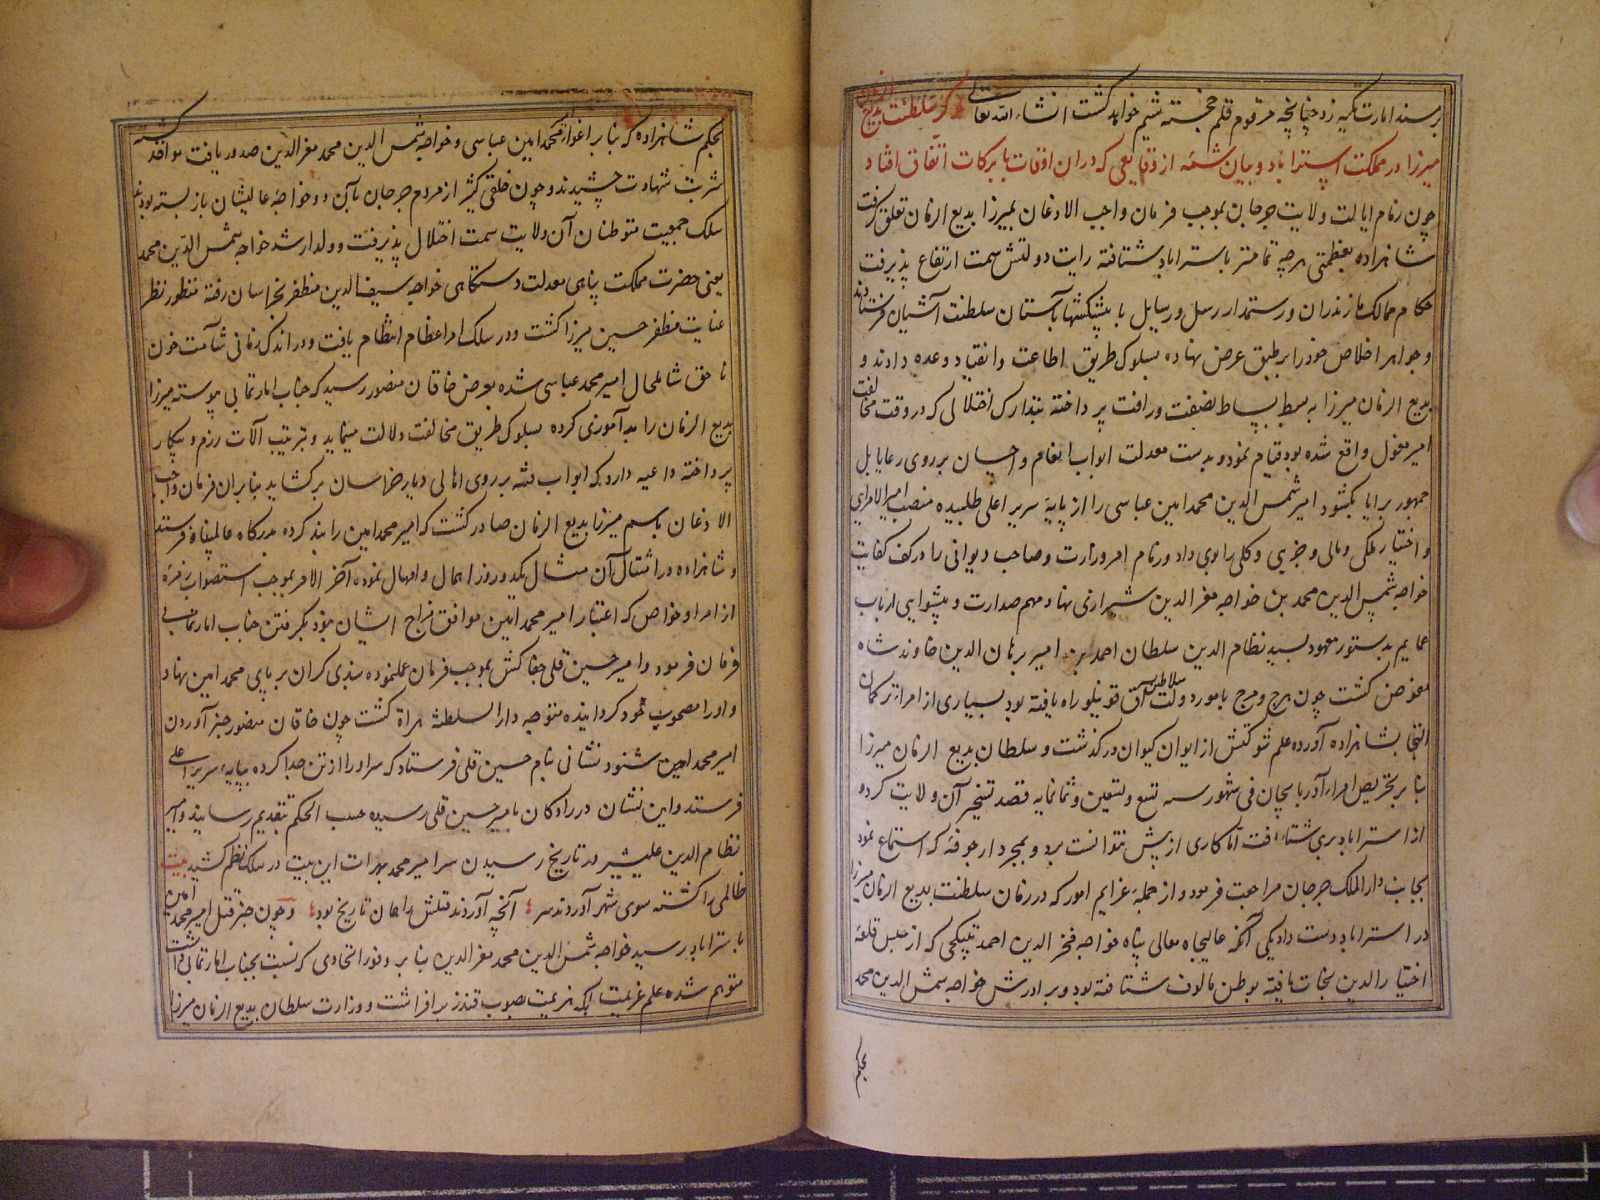 بر مسند امارت تکیه زد چنانچه مرقوم قلم خجسته شیم خواهد گشت انشاء الله تعالی ذکر سلطنت بدیع الزمان
میرزا در مملکت استراباد و بیان شمهٔ از وقایعی که در ان اوقات با برکات اتفاق افتاد
چون زمام ایالت ولایت جرجان بموجب فرمان واجب الاذعان بمیرزا بدیع الزمان تعلق گرفت
شاهزاده بعظمتی هرچه تمامتر باستراباد شتافته رایت دولتش سمت ارتفاع پذیرفت
حکام ممالک مازندران و رستمدار رسل و رسایل با پیشکشها بآستان سلطنت آشیان فرستادند
و جواهر اخلاص خود را بر طبق عرض نهاده بسلوک طریق اطاعت و انقیاد وعده دادند و
بدیع الزمان میرزا به بسط بساط نصفت و رافت پرداخته بتدارک اختلالی که در وقت مخالفت
امیر مغول واقع شده بود قیام نمود و بدست معدلت ابواب انعام و احسان بر روی رعایا بل
جمهور برایا بگشود امیر شمس الدین محمد امین عباسی را از پایهٔ سریر اعلی طلبیده منصب امیر الامرایی
و اختیار ملکی و مالی و جزیی و کلی را بوی داد و زمام امر وزارت و صاحب دیوانی را در کف کفایت
خواجه شمس الدین محمد بن خواجه معز الدین شیرازی نهاد و مهم صدارت و پیشوایی ارباب
عمایم بدستور معهود بسید نظام الدین سلطان احمد بن امیر برهان الدین خاوند شاه
مفوض گشت چون هرج و مرج بامور دولت سلاطین آق قوینلو راه یافته بود بسیاری از امراء ترکمان
التجا بشاهزاده آورده علم شوکتش از ایوان کیوان درگذشت و سلطان بدیع الزمان میرزا
بنا بر تحریص امراء آذربایجان فی شهور سنه تسع و تسعین و ثمانمایه قصد تسخیر آن ولایت کرده
از استراباد بری شتافت اما کاری از پیش نتوانست برد و بمجرد ارجوفه که استماع نمود
بجانب دار الملک جرجان مراجعت فرمود و از جملهٔ عزایم امور که در زمان سلطنت بدیع الزمان میرزا
در استراباد دست داد یکی آنکه عالیجاه معالی پناه خواجه فخر الدین احمد تیپکچی که از حبس قلعهٔ
اختیار الدین نجات یافته بوطن مالوف شتافته بود و برادرش خواجه شمس الدین محمد
بحکم
بحکم شاهزاده که بنا بر اغواء محمد امین عباسی و خواجه شمس الدین محمد معز الدین صدور یافت مواخذ گشته
شربت شهادت چشیدند و چون خلقی کثیر از مردم جرجان بآن دو خواجهٔ عالیشان باز بسته بودند
سلک جمعیت متوطنان آن ولایت سمت اختلال پذیرفت و ولد ارشد خواجه شمس الدین محمد
یعنی حضرت مملکت پناهی معدلت دستگاهی خواجه سیف الدین مظفر بخراسان رفته منظور نظر
عنایت مظفر حسین میرزا گشت و در سلک امراء عظام انتظام یافت و در اندک زمانی شآمت خون
ناحق شامل حال امیر محمد عباسی شده بعرض خاقان منصور رسید که جناب امارتمابی پیوسته میرزا
بدیع الزمان را بدآموزی کرده بسلوک طریق مخالفت دلالت مینماید و بترتیب آلات رزم و پیکار
پرداخته داعیه دارد که ابواب فتنه بر روی اهالی دیار خراسان برگشاید بنابران فرمان واجب
الاذعان باسم میرزا بدیع الزمان صادر گشت که امیر محمد امین را بند کرده بدرگاه عالمپناه فرستد
و شاهزاده در امتثال آن مثال یکدو روز اهمال و امهال نموده آخر الامر بموجب استصواب زمرهٔ
از امرا و خواص که اعتبار امیر محمد امین موافق مزاج ایشان نبود بگرفتن جناب امارتمابی
فرمان فرمود و امیر حسین قلی جفاکش بموجب فرمان عمل نموده بندی گران بر پای محمد امین نهاد
و او را مصحوب خود گردانیده متوجه دار السلطنهٔ هراة گشت چون خاقان منصور خبر آوردن
امیر محمد امین شنود نشانی بنام حسین قلی فرستاد که سر او را از تن جدا کرده بپایهٔ سریر اعلی
فرستد و این نشان در رادکان بامیر حسین قلی رسیده حسب الحکم بتقدیم رسانید و امیر
نظام الدین علیشیر در تاریخ رسیدن سر امیر محمد بهرات این بیت در سلک نظم کشید بیت
ظالمی را کشته سوی شهر آوردند سر آنچه آوردند قتلش را همان تاریخ بود و چون خبر قتل امیر محمد امین
باستراباد رسید خواجه شمس الدین محمد معز الدین بنا بر وفور اتحادی که نسبت بجناب امارتمابی داشت
متوهم شده علم عزیمت بلکه هزیمت بصوب قندز برافراشت و وزارت سلطان بدیع الزمان میرزا